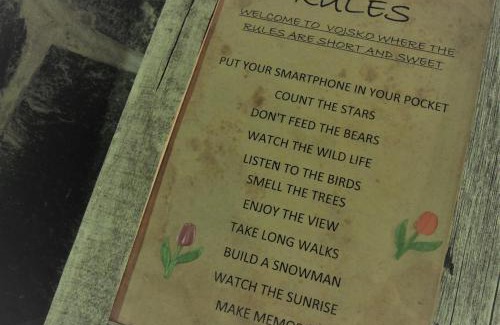 RULES
WELCOME TO VOJSKO WHERE THE
RULES ARE SHORT AND SWEET
PUT YOUR SMARTPHONE IN YOUR POCKET
COUNT THE STARS
DON'T FEED THE BEARS
WATCH THE WILD LIFE
LISTEN TO THE BIRDS
SMELL THE TREES
ENJOY THE VIEW
TAKE LONG WALKS
BUILD A SNOWMAN
WATCH THE SUNRISE
MAKE